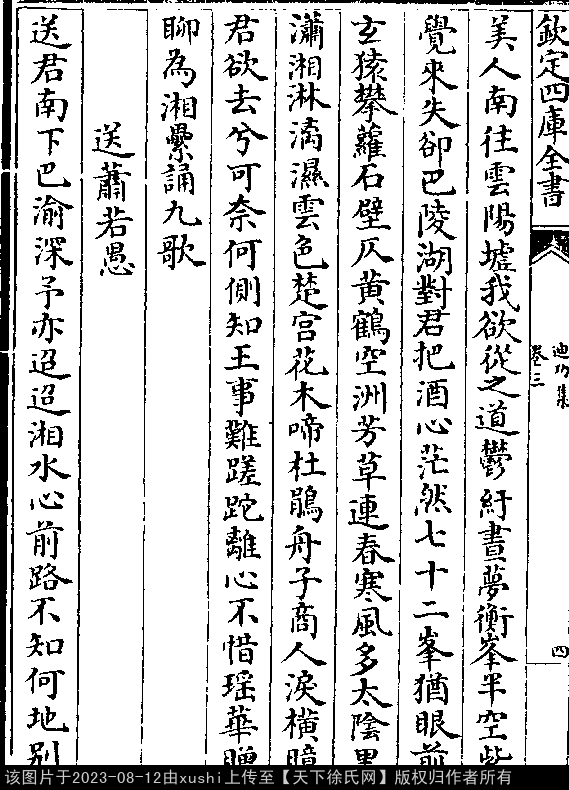 欽定四庫全書
迪功集
卷三
四
美人南往雲陽墟我欲從之道鬱紆晝夢衡峯半空紫
覺來失卻巴陵湖對君把酒心茫然七十二峯猶眼前
玄猿攀蘿石壁仄黄鶴空洲芳草連春寒風多太陰黒
瀟湘淋漓濕雲色楚宫花木啼杜鵑舟子商人淚橫臆
君欲去兮可奈何側知王事難蹉跎離心不惜瑶華贈
聊為湘纍誦九歌
送蕭若愚
送君南下巴渝深予亦迢迢湘水心前路不知何地别
该图片于2023-08-12由xushi上传至【天下徐氏网】版权归作者所有